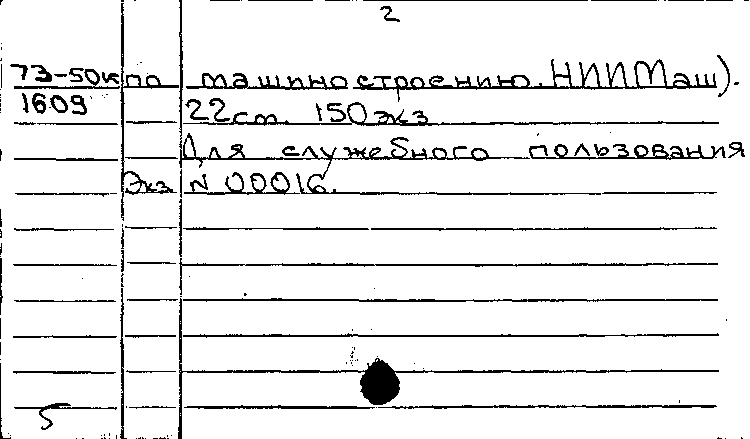 2
73-50к по машиностроению. НИИМаш).
1609 22см. 150экз
Для служебного пользования
Экз N 00016.
5